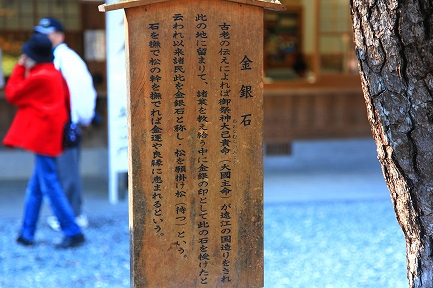 金銀石
古老の伝えによれば御祭神大己貴命(大国主命)が遠江の国造りをされ
此の地に留まりて、諸業を教え給う中に金銀の印として此の石を授けたと
云われ以来諸民此を金銀石と称し・松を願掛け松(待つ)という。
石を撫で松の幹を撫でれば金運や良縁に恵まれるという。